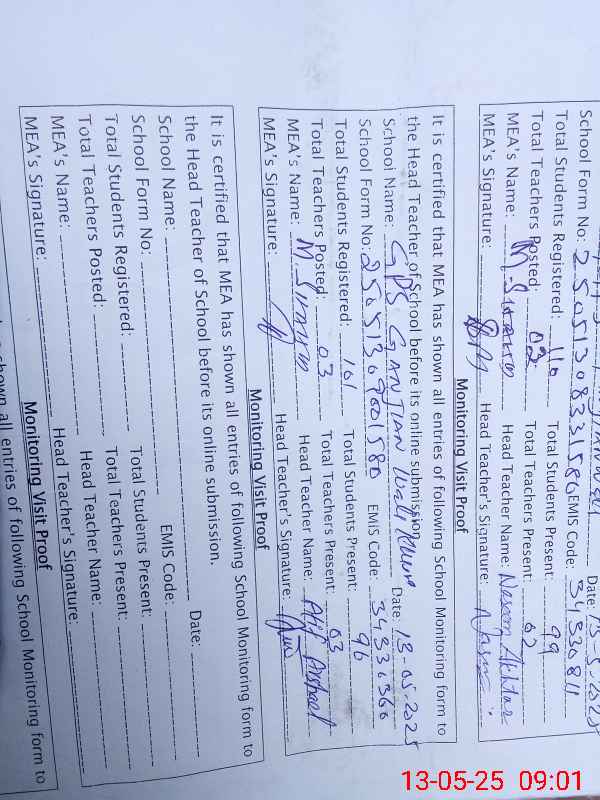 School Form No: 25051308331580 EMIS Code: 34330811
Total Students Registered: 110 Total Students Present: 99
Total Teachers Posted: 02 Total Teachers Present: 02
MEA's Name: Head Teacher Name: Naseem Akhtar
MEA's Signature: Head Teacher's Signature:
Monitoring Visit Proof
It is certified that MEA has shown all entries of following School Monitoring form to
the Head Teacher of School before its online submission.
School Name: GPS GANJIAN Wali Date: 13-05-2025
School Form No: EMIS Code: 34330360
Total Students Registered: 101 Total Students Present: 96
Total Teachers Posted: 03 Total Teachers Present: 03
MEA's Name: Head Teacher Name:
MEA's Signature: Head Teacher's Signature:
Monitoring Visit Proof
It is certified that MEA has shown all entries of following School Monitoring form to
the Head Teacher of School before its online submission.
School Name: Date:
School Form No: EMIS Code:
Total Students Registered: Total Students Present:
Total Teachers Posted: Total Teachers Present:
MEA's Name: Head Teacher Name:
MEA's Signature: Head Teacher's Signature:
Monitoring Visit Proof
shown all entries of following School Monitoring form to
13-05-25 09:01